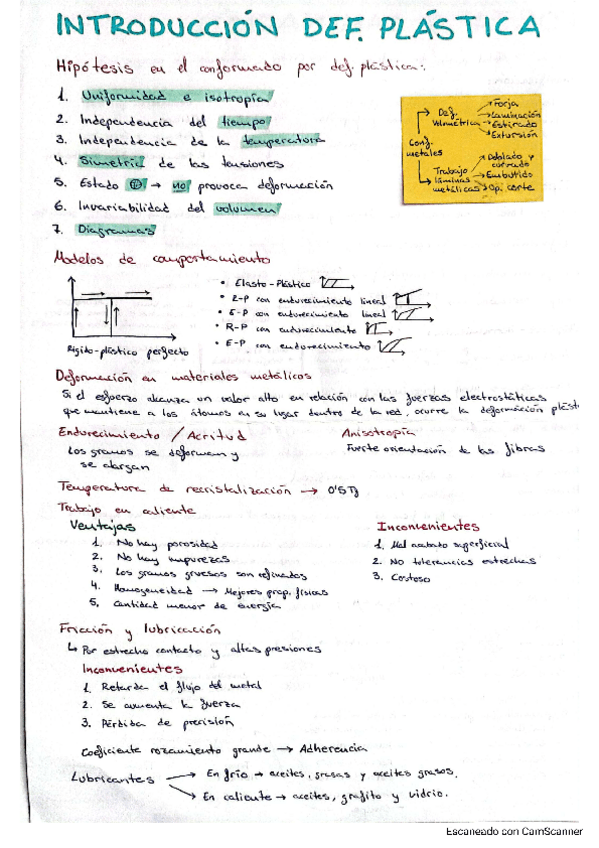 INTRODUCCIÓN DEF. PLÁSTICA
Hipótesis en el conformado por def. plástica:
1. Uniformidad e isotropía
2. Independencia del tiempo
3. Independencia de la temperatura
4. Simetría de las tensiones
5. Estado → no provoca deformación
6. Invariabilidad del volumen
7. Diagramas
Conf. metales
Def. Volumétrica
→ Forja
→ Laminación
→ Estirado
→ Extursión
Trabajo láminas metálicas
→ Doblado y curvado
→ Embutido
→ Op. corte
Modelos de comportamiento
Rígido-plástico perfecto
• Elasto-Plástico
• E-P con endurecimiento lineal
• E-P con endurecimiento lineal
• R-P con endurecimiento
• E-P con endurecimiento
Deformación en materiales metálicos
Si el esfuerzo alcanza un valor alto en relación con las fuerzas electrostáticas
que mantiene a los átomos en su lugar dentro de la red, ocurre la deformación plást
Endurecimiento / Acritud
Los granos se deforman y
se alargan
Anisotropía
Fuerte orientación de las fibras
Temperatura de recristalización → 0'5 Tf
Trabajo en caliente
Ventajas
1. No hay porosidad
2. No hay impurezas
3. Los granos gruesos son refinados
4. Homogeneidad → Mejores prop. físicas
5. Cantidad menor de energía
Inconvenientes
1. Mal acabado superficial
2. No tolerancias estrechas
3. Costoso
Fricción y lubricación
↳ Por estrecho contacto y altas presiones
Inconvenientes
1. Retarda el flujo del metal
2. Se aumenta la fuerza
3. Pérdida de precisión
Coeficiente rozamiento grande → Adherencia
Lubricantes
→ En frío → aceites, grasas y aceites grasos.
→ En caliente → aceites, grafito y vidrio.
Escaneado con CamScanner